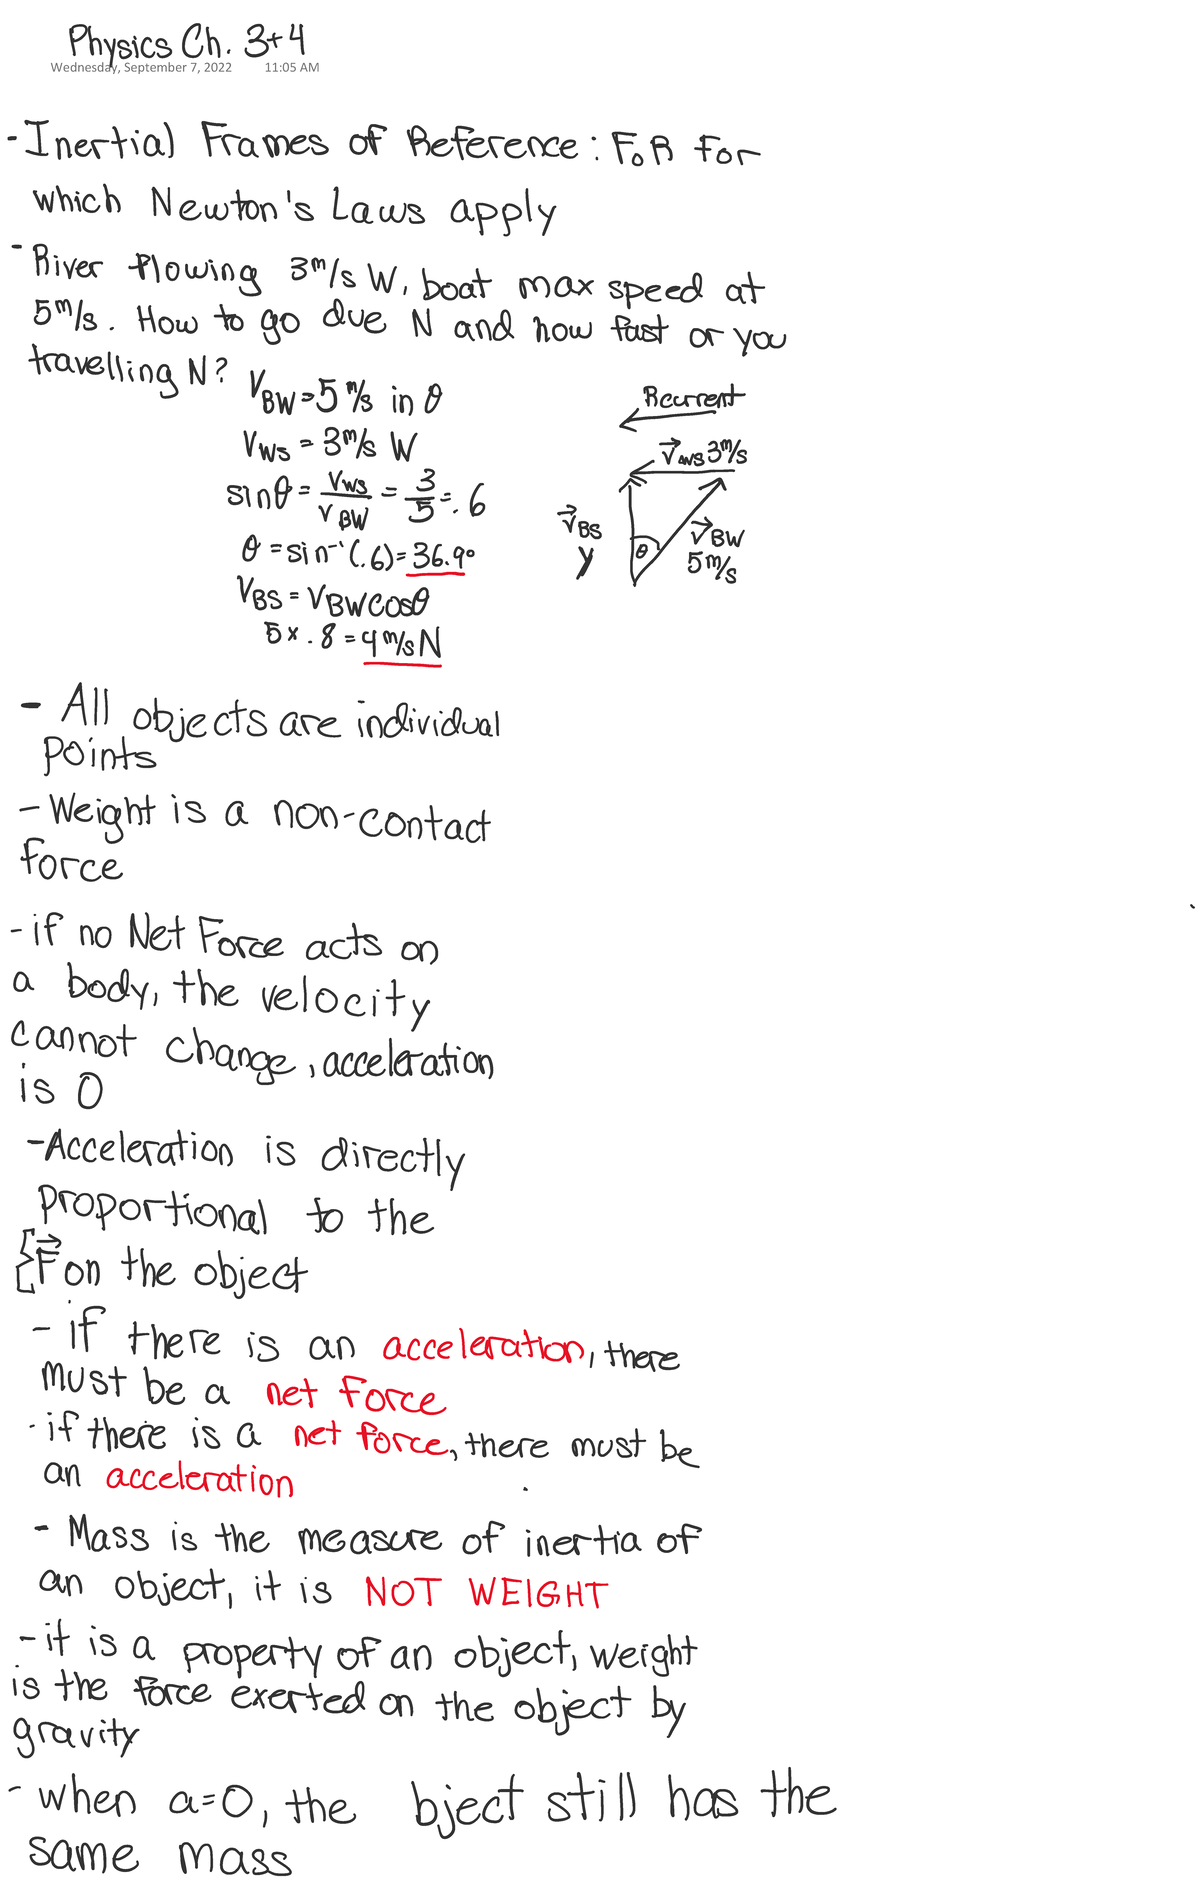 Physics Ch. 3+4
Wednesday, September 7, 2022 11:05 AM
- Inertial Frames of Reference: FoR for
which Newton's Laws apply
- River flowing 3 m/s W, boat max speed at
5 m/s. How to go due N and how fast or you
travelling N?
V_BW = 5 m/s in θ
V_WS = 3 m/s W
sinθ = V_WS / V_BW = 3/5 = .6
θ = sin⁻¹(.6) = 36.9°
V_BS = V_BW cosθ
5 x .8 = 4 m/s N
Rcurrent
V⃗_WS 3 m/s
V⃗_BS
y
θ
V⃗_BW
5 m/s
- All objects are individual
points
- Weight is a non-contact
force
- if no Net Force acts on
a body, the velocity
cannot change, acceleration
is 0
- Acceleration is directly
proportional to the
ΣF⃗ on the object
- if there is an acceleration, there
must be a net force
- if there is a net force, there must be
an acceleration
- Mass is the measure of inertia of
an object, it is NOT WEIGHT
- it is a property of an object, weight
is the force exerted on the object by
gravity
- when a=0, the bject still has the
same mass